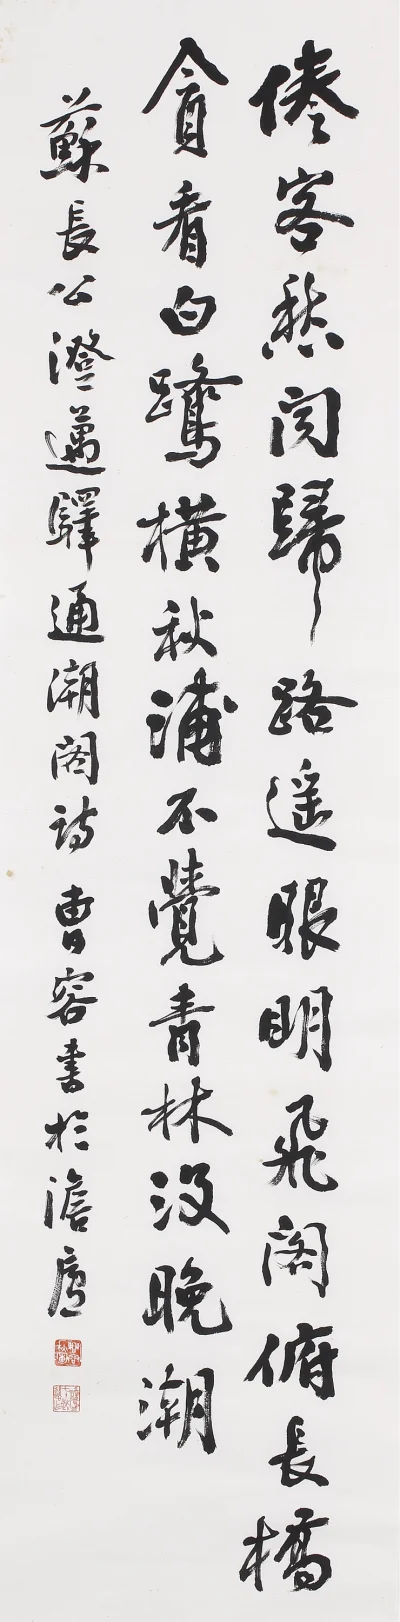 倦客愁聞歸路遙眼明飛閣俯長橋
貪看白鷺橫秋浦不覺青林沒晚潮
蘇長公澄邁驛通潮閣詩 曹容書於澹廬